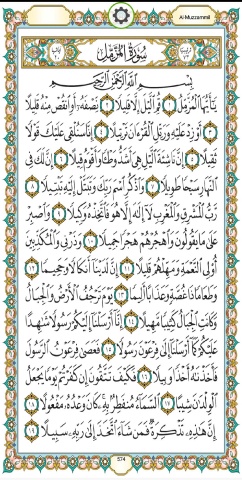 Al-Muzzammil
سُورَةُ المُزَّمِّلِ
بِسْمِ اللَّهِ الرَّحْمَٰنِ الرَّحِيمِ
يَٰٓأَيُّهَا ٱلْمُزَّمِّلُ ١ قُمِ ٱلَّيْلَ إِلَّا قَلِيلًا ٢ نِّصْفَهُۥٓ أَوِ ٱنقُصْ مِنْهُ قَلِيلًا
٣ أَوْ زِدْ عَلَيْهِ وَرَتِّلِ ٱلْقُرْءَانَ تَرْتِيلًا ٤ إِنَّا سَنُلْقِى عَلَيْكَ قَوْلًا
ثَقِيلًا ٥ إِنَّ نَاشِئَةَ ٱلَّيْلِ هِىَ أَشَدُّ وَطْـًٔا وَأَقْوَمُ قِيلًا ٦ إِنَّ لَكَ فِى
ٱلنَّهَارِ سَبْحًا طَوِيلًا ٧ وَٱذْكُرِ ٱسْمَ رَبِّكَ وَتَبَتَّلْ إِلَيْهِ تَبْتِيلًا ٨
رَّبُّ ٱلْمَشْرِقِ وَٱلْمَغْرِبِ لَآ إِلَٰهَ إِلَّا هُوَ فَٱتَّخِذْهُ وَكِيلًا ٩ وَٱصْبِرْ
عَلَىٰ مَا يَقُولُونَ وَٱهْجُرْهُمْ هَجْرًا جَمِيلًا ١٠ وَذَرْنِى وَٱلْمُكَذِّبِينَ
أُو۟لِى ٱلنَّعْمَةِ وَمَهِّلْهُمْ قَلِيلًا ١١ إِنَّ لَدَيْنَآ أَنكَالًا وَجَحِيمًا ١٢
وَطَعَامًا ذَا غُصَّةٍ وَعَذَابًا أَلِيمًا ١٣ يَوْمَ تَرْجُفُ ٱلْأَرْضُ وَٱلْجِبَالُ
وَكَانَتِ ٱلْجِبَالُ كَثِيبًا مَّهِيلًا ١٤ إِنَّآ أَرْسَلْنَآ إِلَيْكُمْ رَسُولًا شَٰهِدًا
عَلَيْكُمْ كَمَآ أَرْسَلْنَآ إِلَىٰ فِرْعَوْنَ رَسُولًا ١٥ فَعَصَىٰ فِرْعَوْنُ ٱلرَّسُولَ
فَأَخَذْنَٰهُ أَخْذًا وَبِيلًا ١٦ فَكَيْفَ تَتَّقُونَ إِن كَفَرْتُمْ يَوْمًا يَجْعَلُ
ٱلْوِلْدَٰنَ شِيبًا ١٧ ٱلسَّمَآءُ مُنفَطِرٌۢ بِهِۦ كَانَ وَعْدُهُۥ مَفْعُولًا ١٨
إِنَّ هَٰذِهِۦ تَذْكِرَةٌ فَمَن شَآءَ ٱتَّخَذَ إِلَىٰ رَبِّهِۦ سَبِيلًا ١٩
574